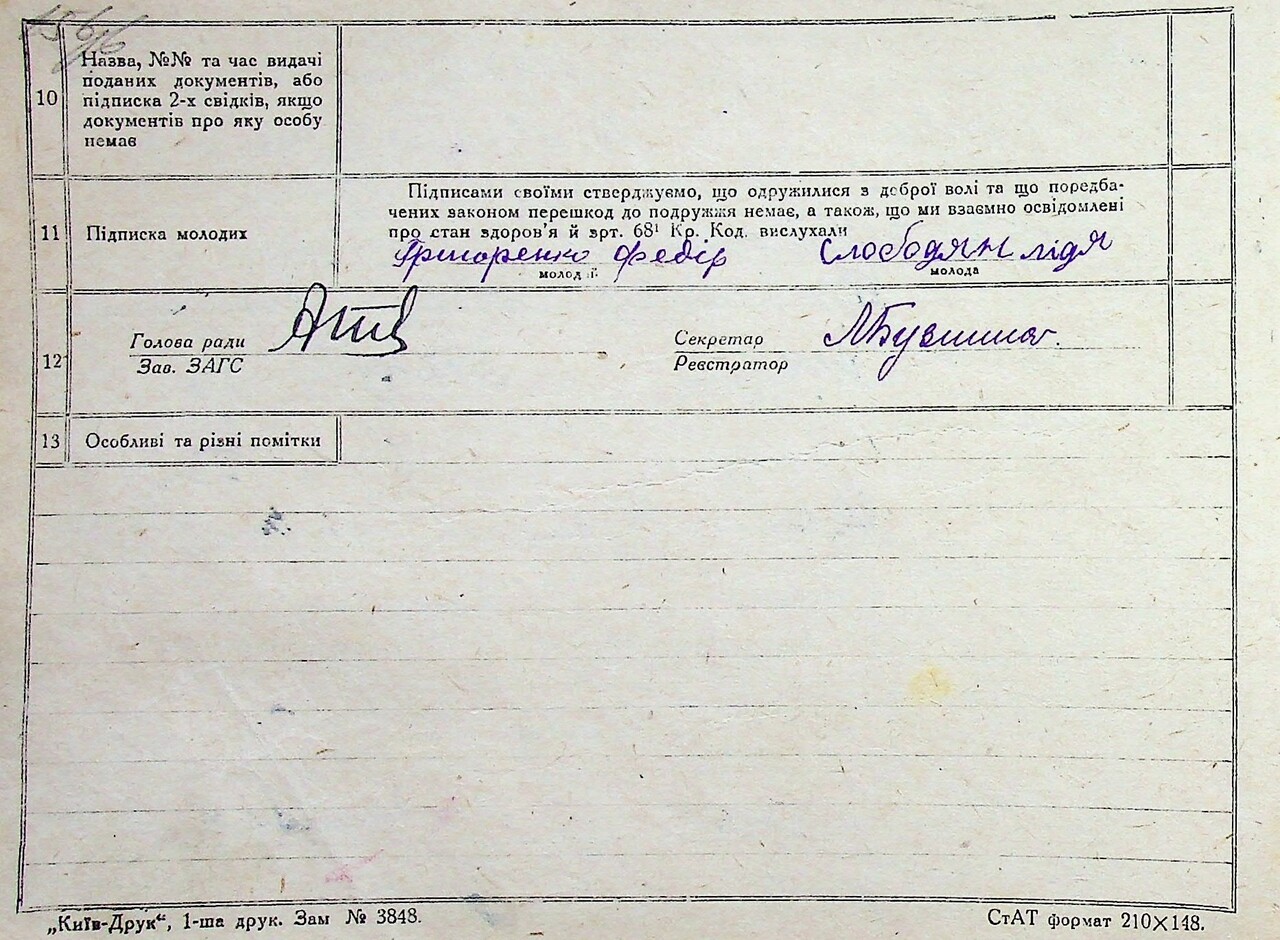 10
Назва, №№ та час видачі
поданих документів, або
підписка 2-х свідків, якщо
документів про яку особу
немає
11
Підписка молодих
Підписами своїми стверджуємо, що одружилися з доброї волі та що поредба-
чених законом перешкод до подружжя немає, а також, що ми взаємно освідомлені
про стан здоров'я й арт. 68¹ Кр. Код. вислухали
Григоренко Федір Слободян Лідя
молодий молода
12
Голова ради
Зав. ЗАГС
Секретар
Реєстратор
13
Особливі та різні помітки
„Київ-Друк“, 1-ша друк. Зам № 3848.
СтАТ формат 210×148.